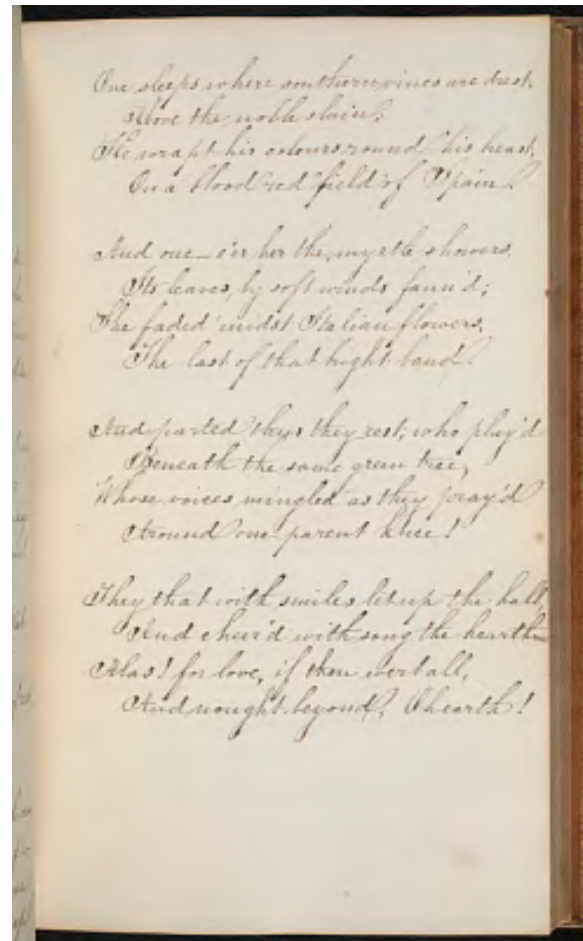 One sleeps where southern vines are drest,
Above the noble slain;
He wrapt his colours round his breast,
On a blood red field of Spain.
And one – o'er her the myrtle showers
Its leaves, by soft winds fann'd;
She faded 'midst Italian flowers,
The last of that bright band.
And parted thus they rest, who play'd
Beneath the same green tree,
Whose voices mingled as they pray'd
Around one parent knee!
They that with smiles lit up the hall,
And cheer'd with song the hearth
Alas! for love, if thou wert all,
And nought beyond, Oh earth!